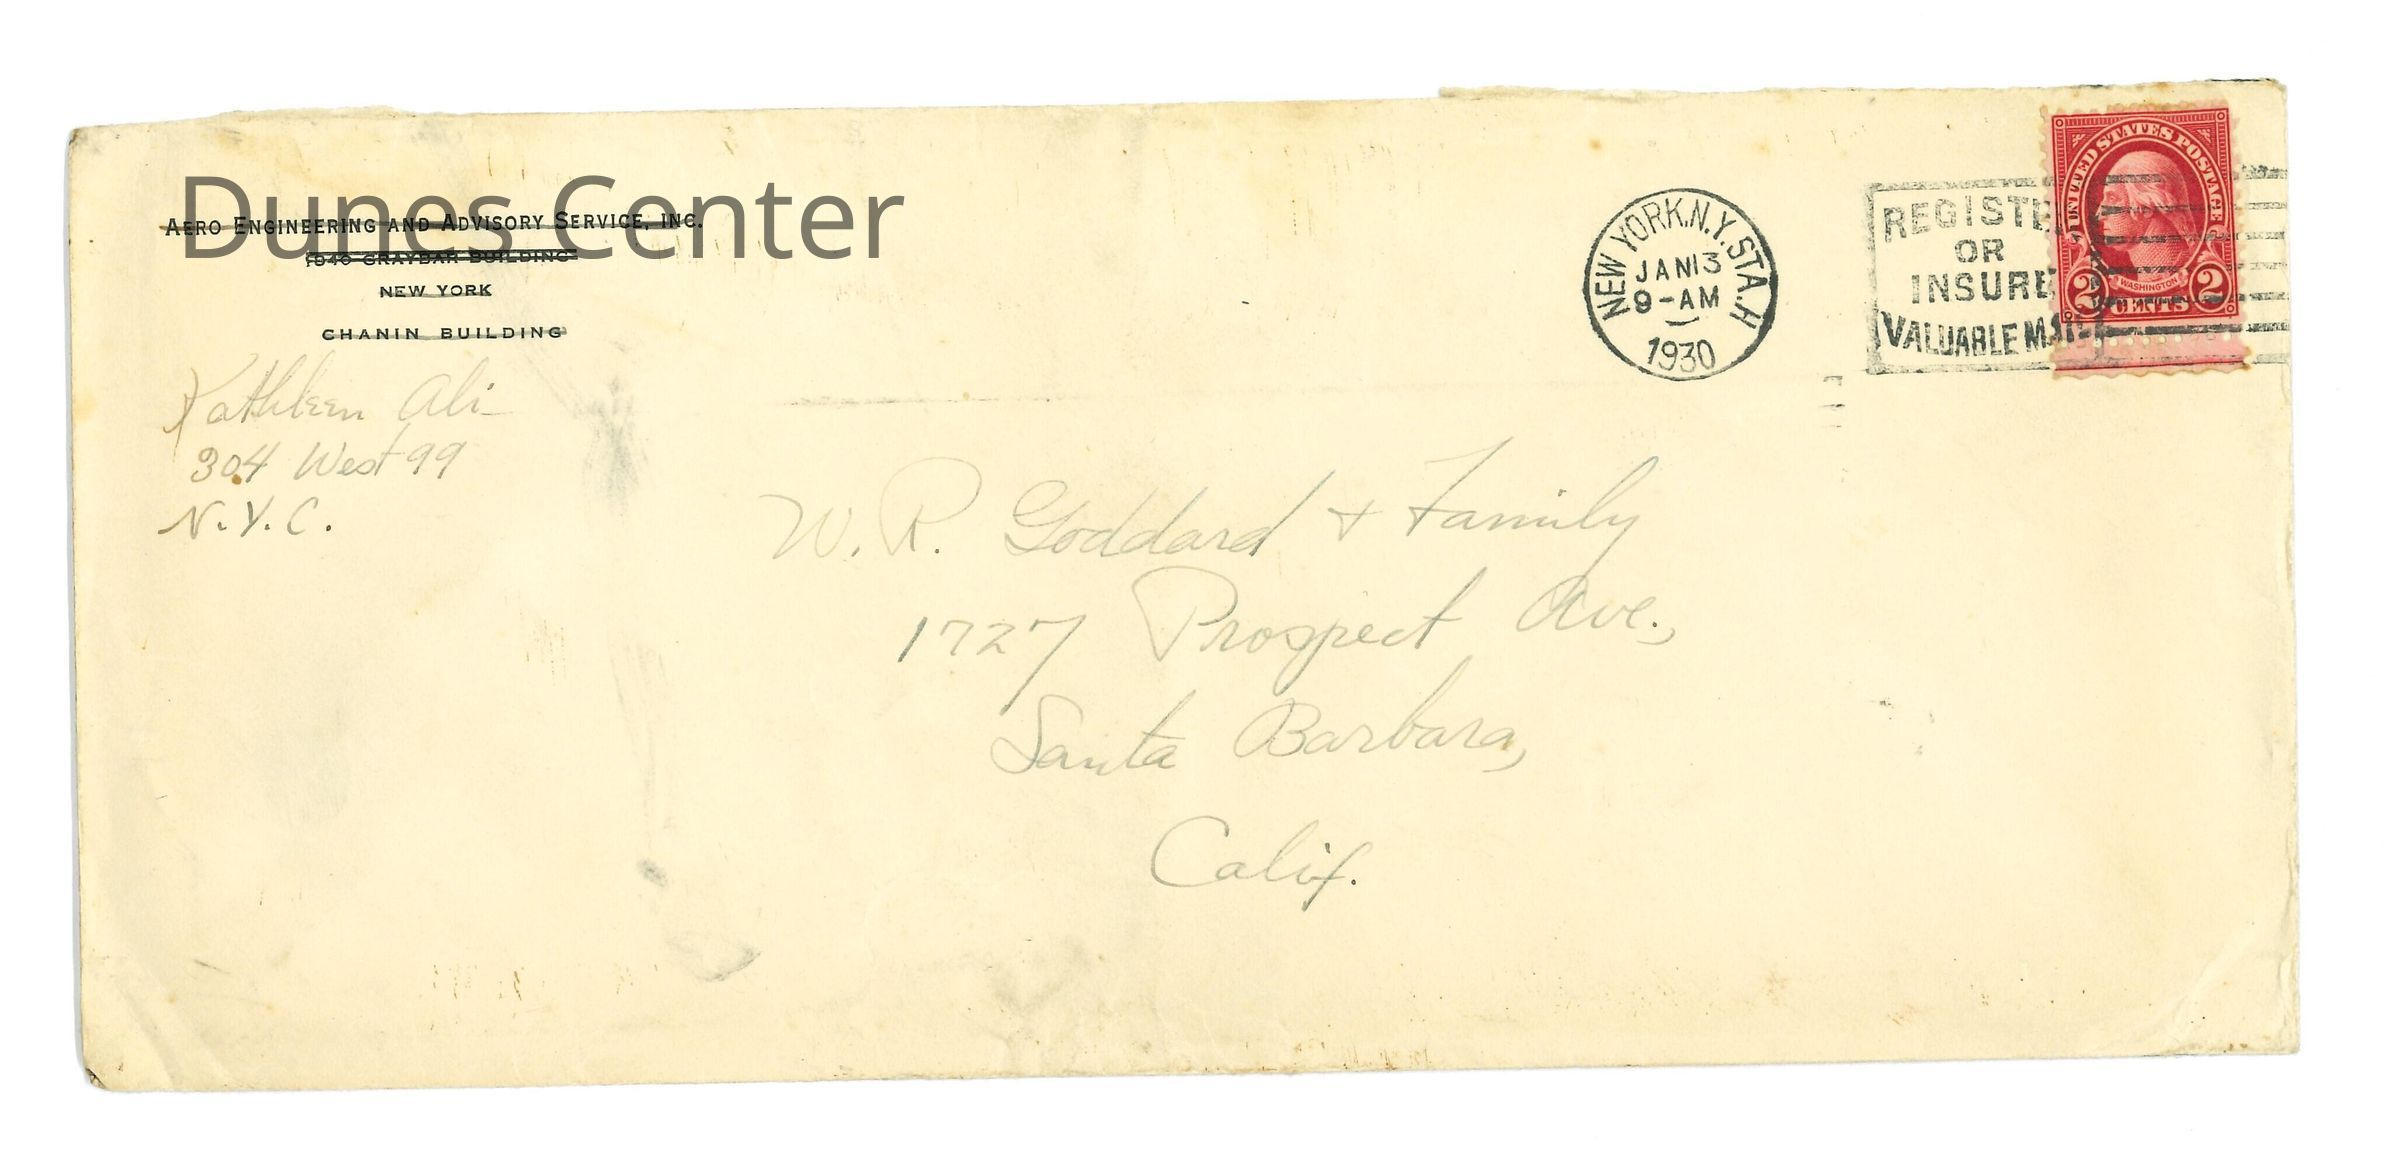 Dunes Center
AERO ENGINEERING AND ADVISORY SERVICE, INC.
1940 GRAYBAR BUILDING
NEW YORK
CHANIN BUILDING
Kathleen Ali
304 West 99
N.Y.C.
NEW YORK, N.Y. STA. H
JAN 13
9-AM
1930
REGISTE
OR
INSURE
VALUABLE MAIL
UNITED STATES POSTAGE
WASHINGTON
2 CENTS 2
W. R. Goddard + Family
1727 Prospect Ave.,
Santa Barbara,
Calif.